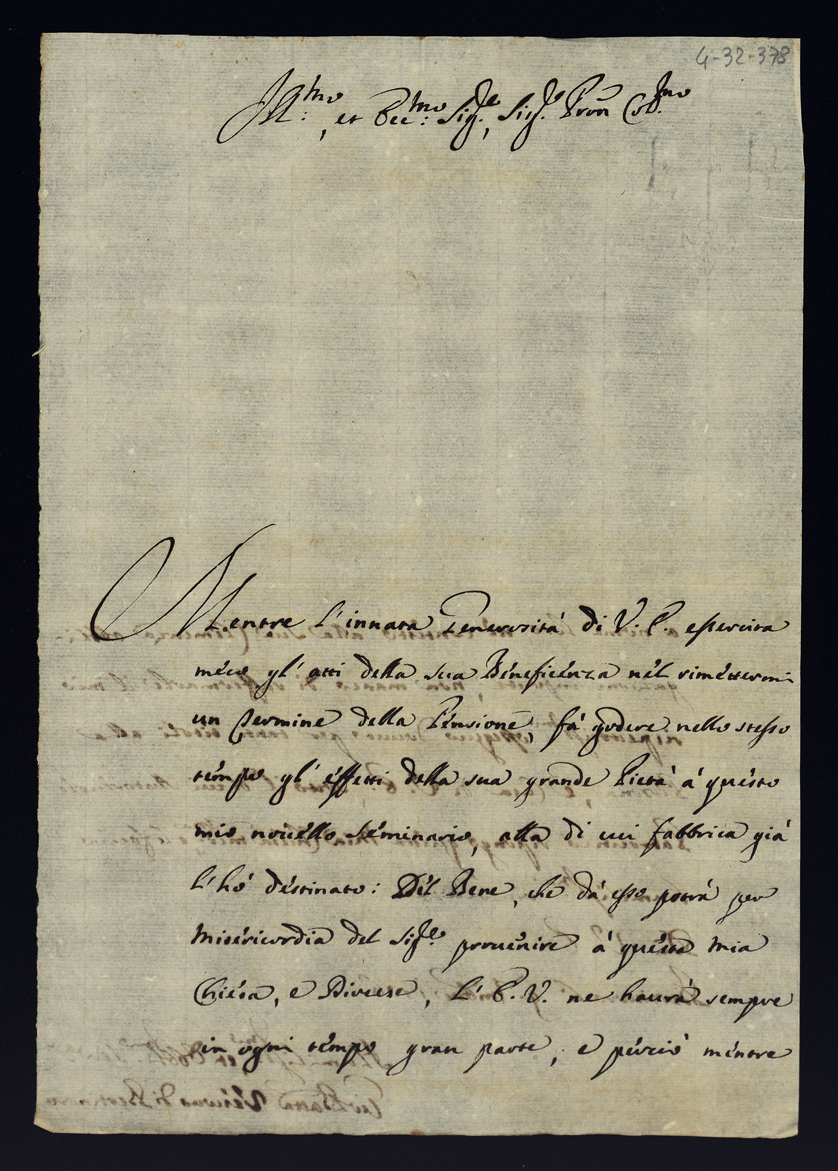 4-32-378
Ill:mo, et Ecc:mo Sig.re, Sig.re Pron Col.mo
Mentre l'innata Generosità di V. E. esercita
meco gl'atti della sua Beneficenza nel rimettermi
un termine della Pensione, fà godere nello stesso
tempo gl'effetti della sua grande Pietà à questo
mio novello seminario, alla di cui fabbrica già
l'hò destinato: Del Bene, che dà esso potrà per
misericordia del Sig.re provenire à questa mia
Chiesa, e Diocese, L'E. V. ne haurà sempre
in ogni tempo gran parte; e perciò mentre